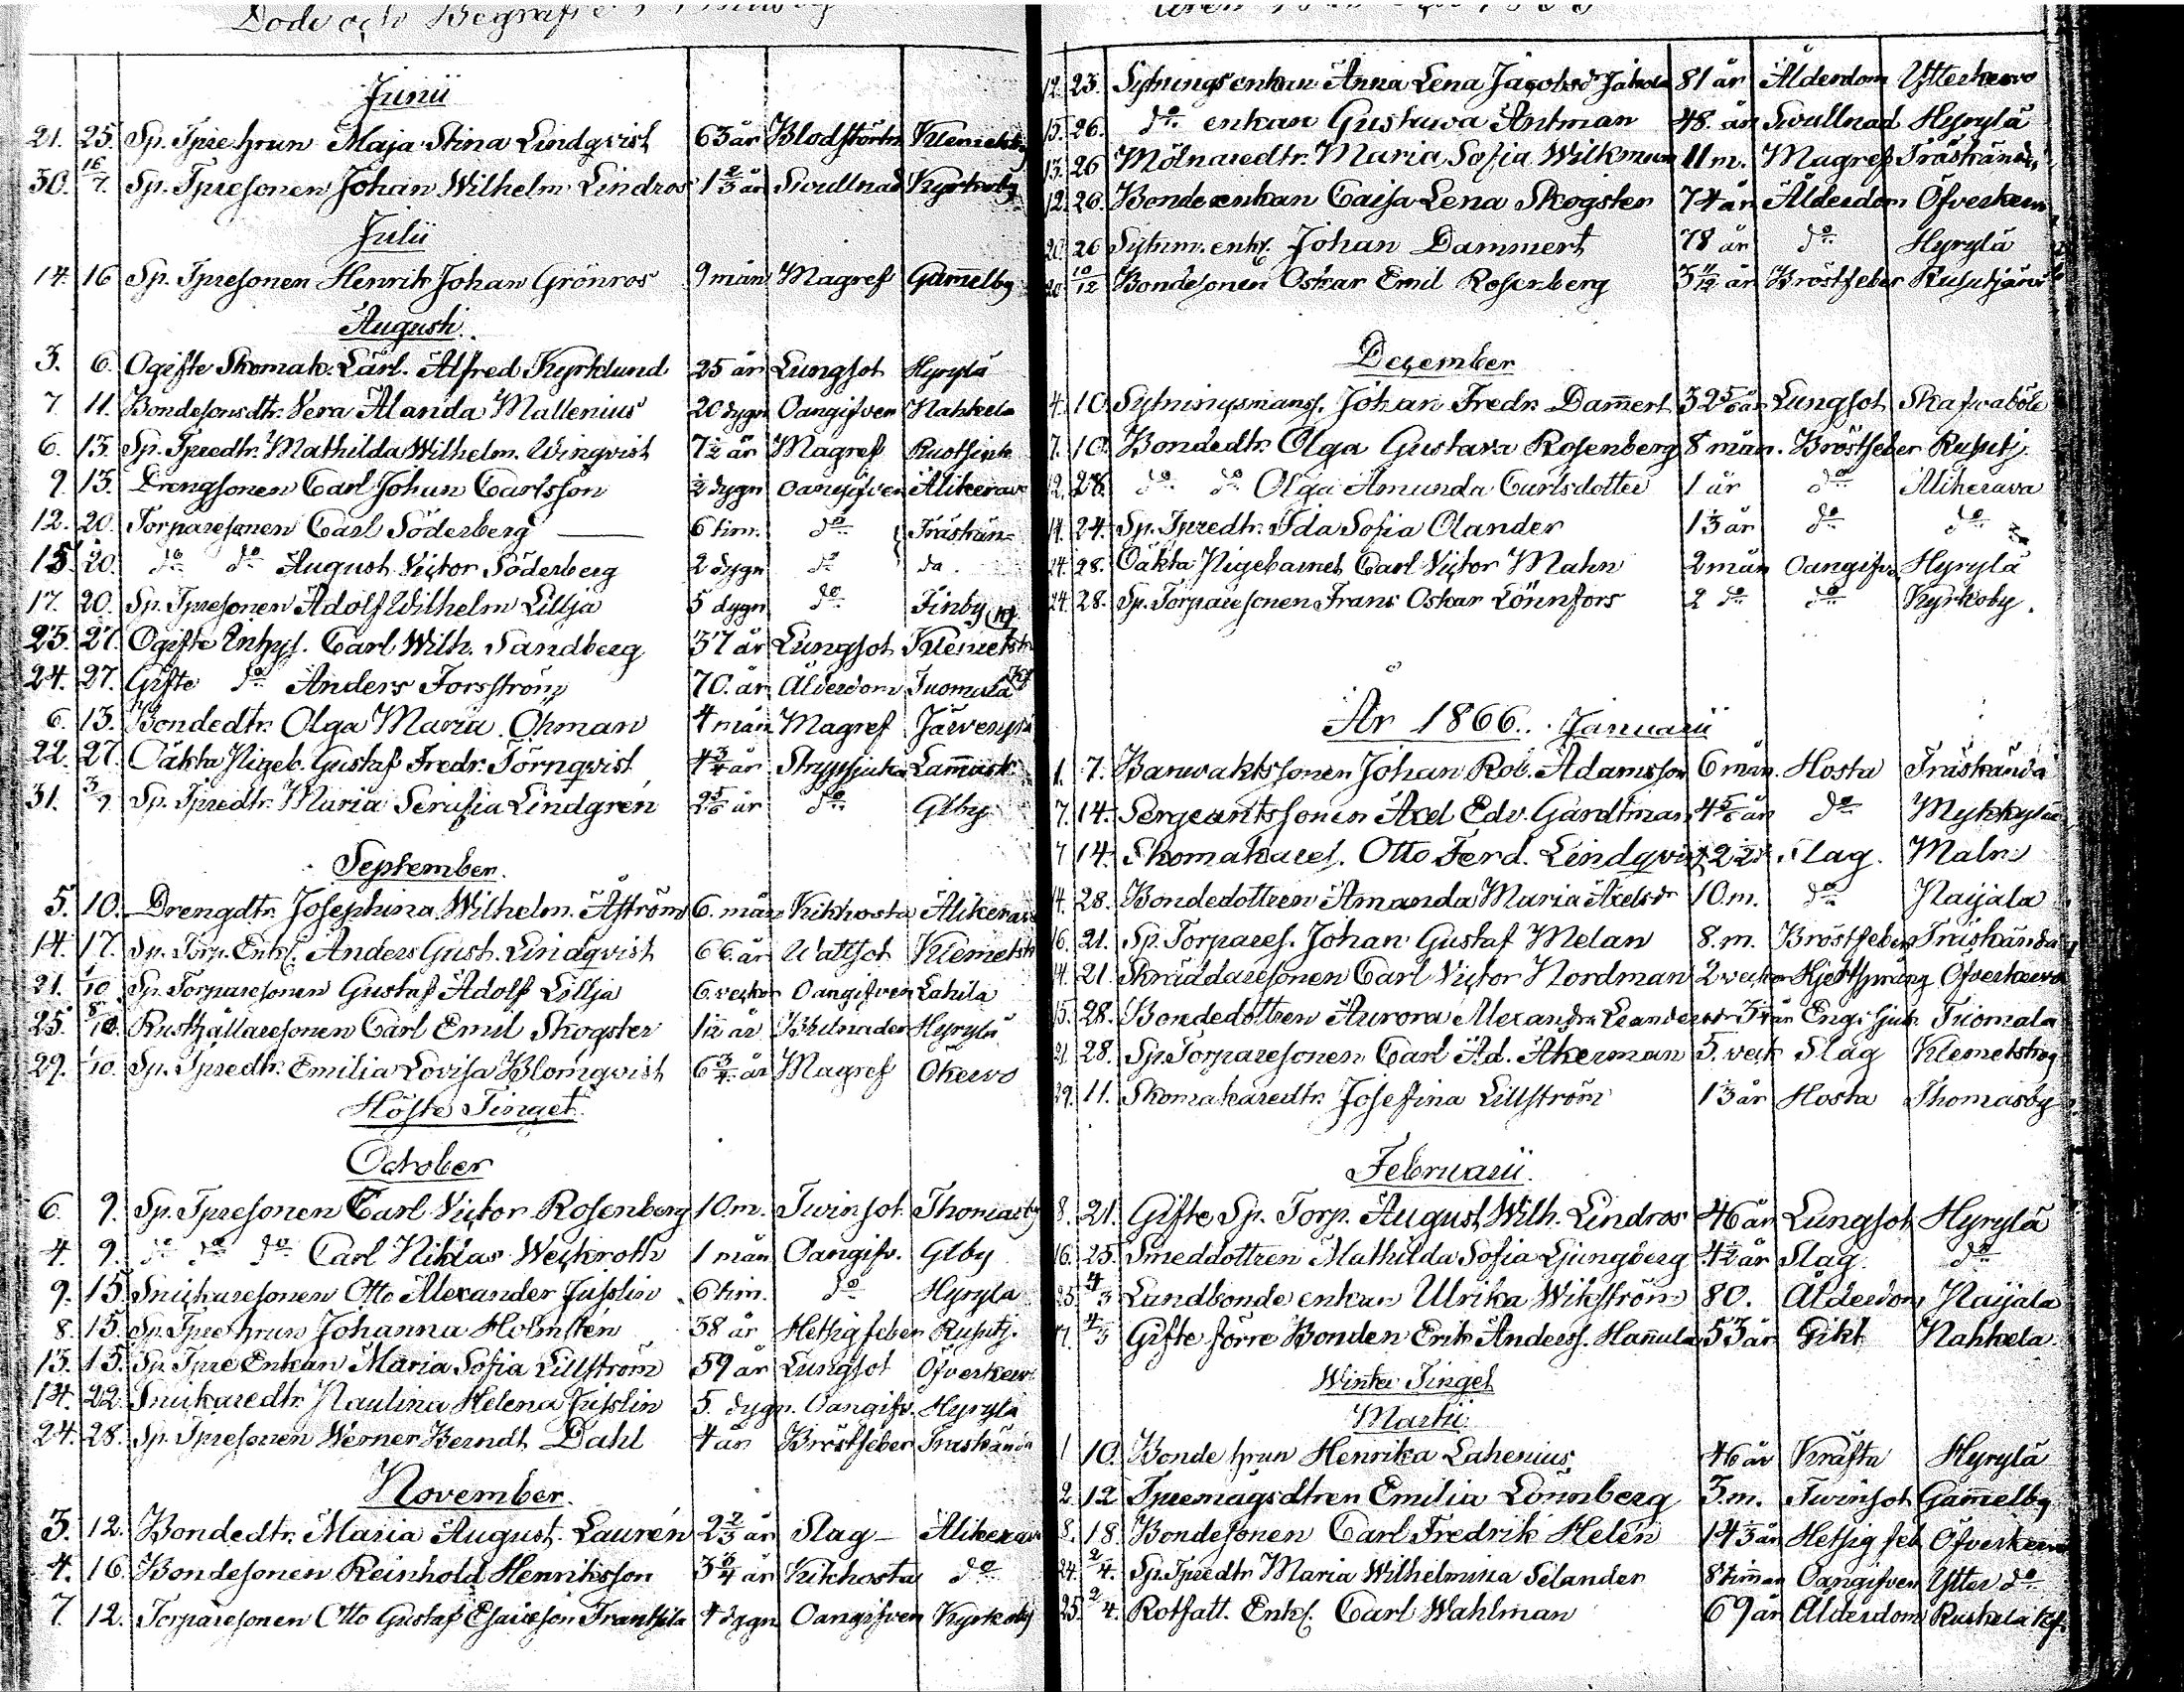 Döde och Begrafne
Junii
21. 25. Sp. Tpre hrun Maja Stina Lindqvist 63 år Blodstörtn Klemetsby
30. 16/7. Sp. Tpresonen Johan Wilhelm Lindros 1 2/3 år Swullnad Kyrkoby
Julii
14. 16 Sp. Tpresonen Henrik Johan Grönros 9 mån Magref Gam̄elby
Augusti.
3. 6. Ogifte Skomak. Lärl. Alfred Kyrklund 25 år Lungsot Hyrylä
7 11. Bondesonsdtr. Vera Alanda Mallenius 20 dygn Oangifven Nahkela
6. 13. Sp. Tpredtr. Mathilda Wilhelm. Winqvist 7 1/2 år Magref
9. 13. Drengsonen Carl Johan Carlsson 1/2 dygn Oangifven Alikerava
12. 20. Torparesonen Carl Söderberg 6 tim. do Träskän
15 20. do do August Victor Söderberg 2 dygn do do.
17. 20. Sp. Tpresonen Adolf Wilhelm Lillja 5 dygn do Finby
23. 27. Ogifte Inhys. Carl Wilh. Sandberg 37 år Lungsot Klemetsk
24. 27. Gifte do Anders Forsström 70. år Ålderdom Tuomala
6. 13. Bondedtr. Olga Maria Öhman 4 mån Magref Järvenpä
22. 27. Oäkta Pigeb. Gustaf Fredr. Törnqvist 4 3/4 år Strypsjuka Lam̄ask
31. 3/9 Sp. Tpredtr. Maria Serafia Lindgrén 2 5/6 år do Glby
September.
5. 10. Drengdtr. Josephina Wilhelm. Åström 6. mån Kikhosta Alikerava
14. 17. Sp. Torp. Enkl. Anders Gust. Lindqvist 66. år Wattsot Klemetsk
21. 1/10 Sp. Torparesonen Gustaf Adolf Lillja 6. veckor Oangifven Lahila
25. 8/10. Rusthållaresonen Carl Emil Skogster 1 1/12 år Bulnader Hyrylä
29. 1/10. Sp. Tpredtr. Emilia Lovisa Blomqvist 6 3/4. år Magref Ökervo
Höste Tinget.
October
6. 9. Sp. Tpresonen Carl Victor Rosenberg 10. m. Twinsot Thomasby
4. 9. do do do Carl Niklas Weckroth 1 mån Oangifv. Glby
9. 15. Snickaresonen Otto Alexander Jusslin 6 tim. do Hyryla
8. 15. Sp. Tpre hrun Johanna Holmstén 38 år Hetsig feber Rusutj.
13. 15. Sp. Tpre Enkan Maria Sofia Lillström 59 år Lungsot Öfverkerv.
14. 22. Snickaredtr. Paulina Helena Jusslin 5. dygn. Oangifv. Hyryla
24. 28. Sp. Tpresonen Werner Berndt Dahl 4 år Bröstfeber Träskända
November.
3. 12. Bondedtr. Maria August. Laurén 2 2/3 år Slag Alikerava
4. 16. Bondesonen Reinhold Henriksson 3 3/4 år Kikhosta do
7 12. Torparesonen Otto Gustaf Esaiæson Frantsila 4 dygn Oangifven Kyrkoby
12. 23. Sytningsenkan Anna Lena Jacobsdr 81 år Ålderdom Ytterkervo
15. 26. do enkan Gustawa Antman 48. år Swullnad Hyrylä
13. 26 Mölnaredtr. Maria Sofia Wilkman 11 m. Magref Träskända
12. 26. Bondeenkan Caisa Lena Skogster 74 år Ålderdom Öfverkerv
20. 26 Sytnin. enkl. Johan Dammert 78 år do Hyrylä
20 10/12 Bondesonen Oskar Emil Rosenberg 3 11/12 år Bröstfeber Rusutjärvi
December
4. 10. Sytningsmanss. Johan Fredr. Dam̄ert 32 5/6 år Lungsot Skafvaböle
7. 10. Bondedtr. Olga Gustava Rosenberg 8 mån. Bröstfeber Rusutj.
12. 28. do do Olga Amanda Carlsdotter 1 år do Alikerava
14. 24. Sp. Tpredtr. Ida Sofia Olander 1 1/3 år do do
24. 28. Oäkta Pigebarnet Carl Victor Malm 2 mån Oangifv. Hyrylä
24. 28. Sp. Torparesonen Frans Oskar Lönnfors 2 do do Kyrkoby.
År 1866. Januarii
1. 7. Barwaktssonen Johan Rob. Adamsson 6 mån. Hosta Träskända
7. 14. Sergeantssonen Axel Edv. Gardtman 4 5/6 år do Mykkylä
7 14. Skomakares. Otto Ferd. Lindqvist Slag. Malm
14. 28. Bondedottren Amanda Maria Axelsdr 10 m. do Paijala
16. 21. Sp. Torpares. Johan Gustaf Melan 8. m. Bröstfeber Träskända
14. 21. Skräddaresonen Carl Victor Nordman 2 veckor Hjertsprång Öfverkervo
15. 28. Bondedottren Aurora Alexandra Leandersdr år Eng. Sjuk. Tuomala
21. 28. Sp. Torparesonen Carl Ad. Åkerman 5. veck Slag Klemetskog
29. 11. Skomakaredtr. Josefina Lillström 1 1/3 år Hosta Thomasby
Februarii.
8. 21. Gifte Sp. Torp. August Wilh. Lindros 46 år Lungsot Hyrylä
16. 25. Smeddottren Mathilda Sofia Ljungberg 4 1/2 år Slag. do
25. 4/3 Landbonde enkan Ulrika Wikström 80. Ålderdom Paijala
17. 4/3 Gifte förre Bonden Erik Anderss. Han̄ula 53 år Gikt Nahkela.
Winter Tinget
Martii.
1 10. Bonde hrun Henrika Lahenius 46 år Kräfta Hyrylä
2. 12 Tpremågsdtren Emilia Lönnberg 3. m. Twinsot Gam̄elby
8. 18. Bondesonen Carl Fredrik Helén 14 1/3 år Hetsig feb. Öfverkerv
24. 2/4. Sp. Tpredtr Maria Wilhelmina Selander 8 timmar Oangifven Ytter do
25. 2/4. Rotfatt. Enkl. Carl Wahlman 69 år Ålderdom Ruskela